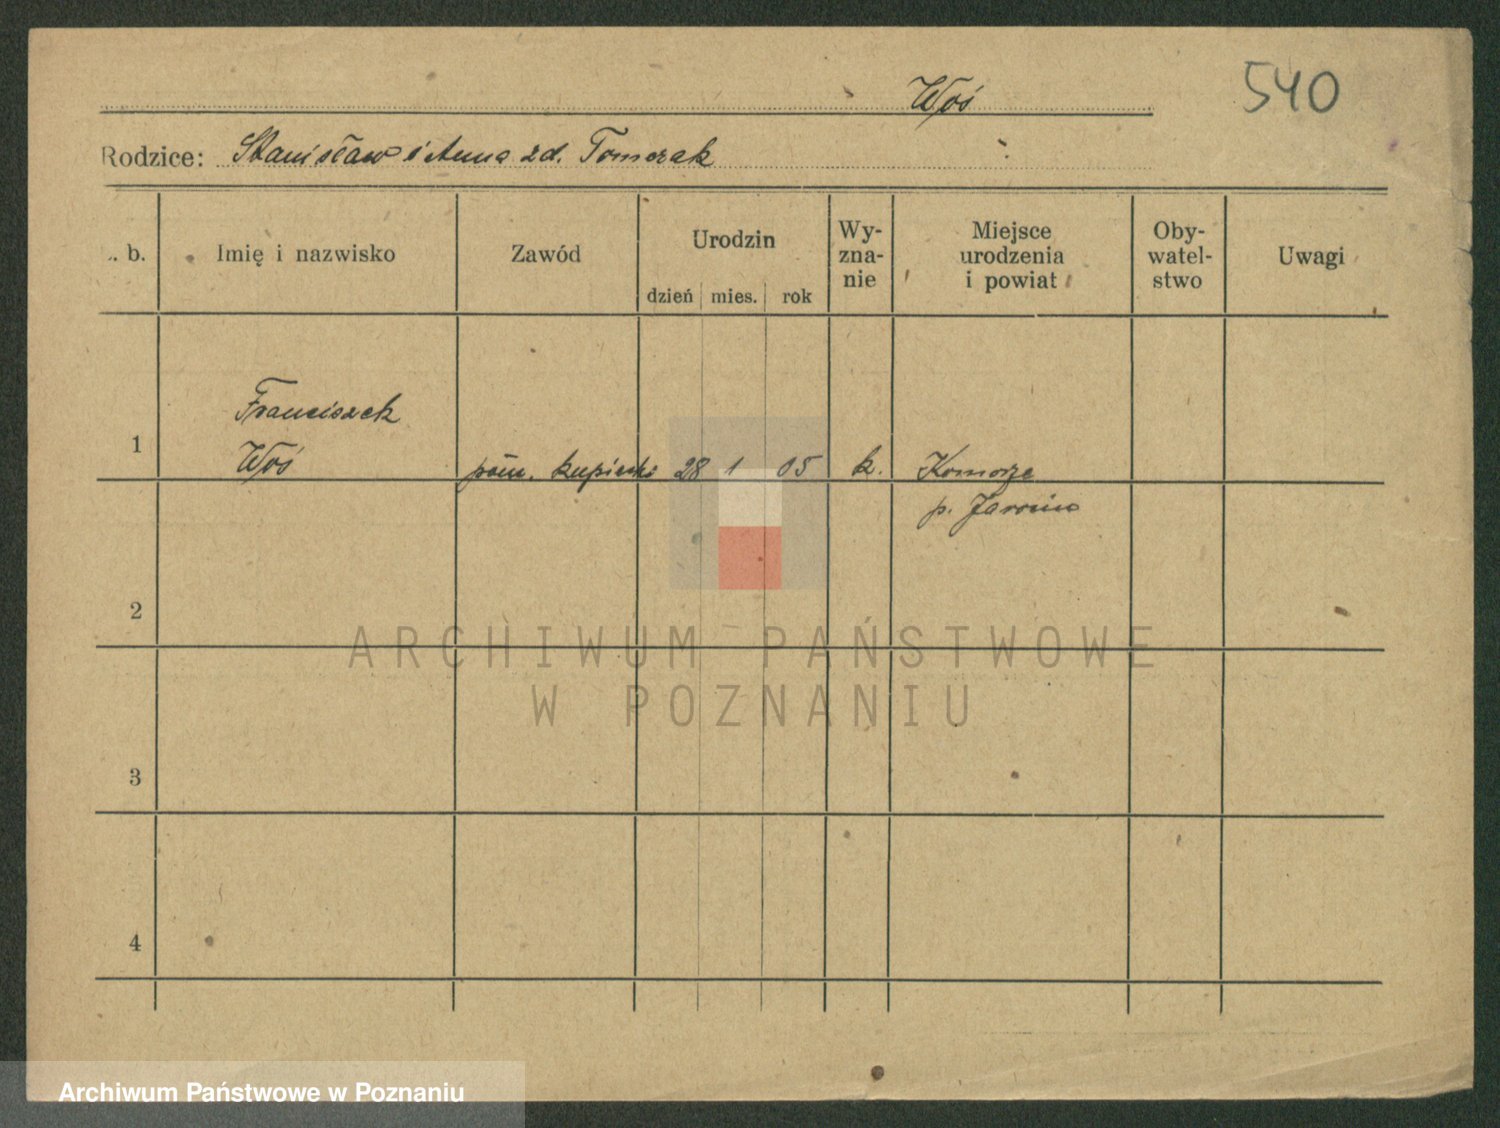 540
Woś
Rodzice: Stanisław i Anna zd. Tomczak
. b. Imię i nazwisko Zawód Urodzin dzień mies. rok Wy- zna- nie Miejsce urodzenia i powiat Oby- watel- stwo Uwagi
Franciszek
1 Woś pom. kupiecki 28 1 05 k. Komorze
p. Jarocin
2
ARCHIWUM PAŃSTWOWE
W POZNANIU
3
4
Archiwum Państwowe w Poznaniu